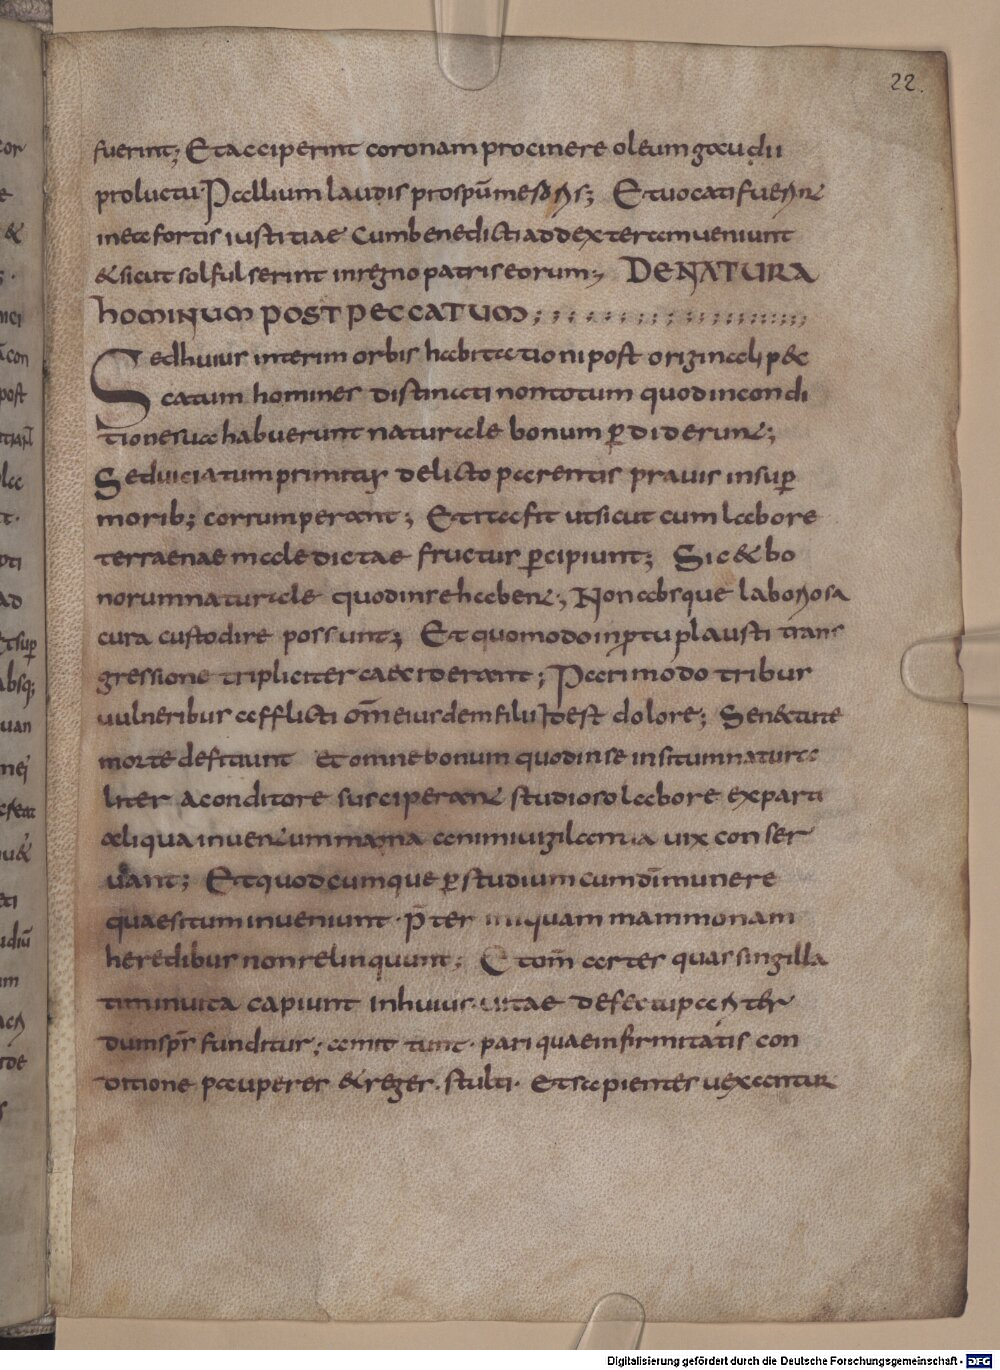 22.
fuerint; Et acciperint coronam pro cinere oleum gaudii
pro luctu. Pallium laudis pro spū mesoris; Et uocati fuerint
in ecc fortis iustitiae Cum benedicti ad dexteram ueniunt
& sicut sol fulserint in regno patris eorum; DE NATURA
HOMINUM POST PECCATUM
Sed huius interim orbis habitationi post originali pec
catum homines distincti non totum quod in condi
tione sua habuerunt naturale bonum ꝑdiderunt;
Sed uiciatum primitus delicto parentis prauis insuꝑ
morib; corrumperant; Et ita fit ut sicut cum labore
terrae nae maledictae fructus ꝑcipiunt; Sic & bo
norum naturale quod in se habent; Non absque laboriosa
cura custodire possunt; Et quomodo in ꝑtu plausti trans
gressione tripliciter caeciderant; Pari modo tribus
uulneribus afflicti om̄ eiusdem filii Idest dolore; Senectute
morte deficiunt et omne bonum quod in se insitum natura
liter a conditore susciperant studioso labore ex parti
aliqua inueniunt magna animi uigilantia uix conser
uant; Et quodcumque ꝑ studium cum dī munere
quaesitum inueniunt. p̄ter iniquam mammonam
heredibus non relinquunt; Et om̄ artes quas singilla
tim in uita capiunt in huius uitae defectu pariter
dum spr̄ funditur; amit tunt. pari quae infirmitatis con
ditione pauperes & reges. stulti. Et sapientes uexantur
Digitalisierung gefördert durch die Deutsche Forschungsgemeinschaft - DFG